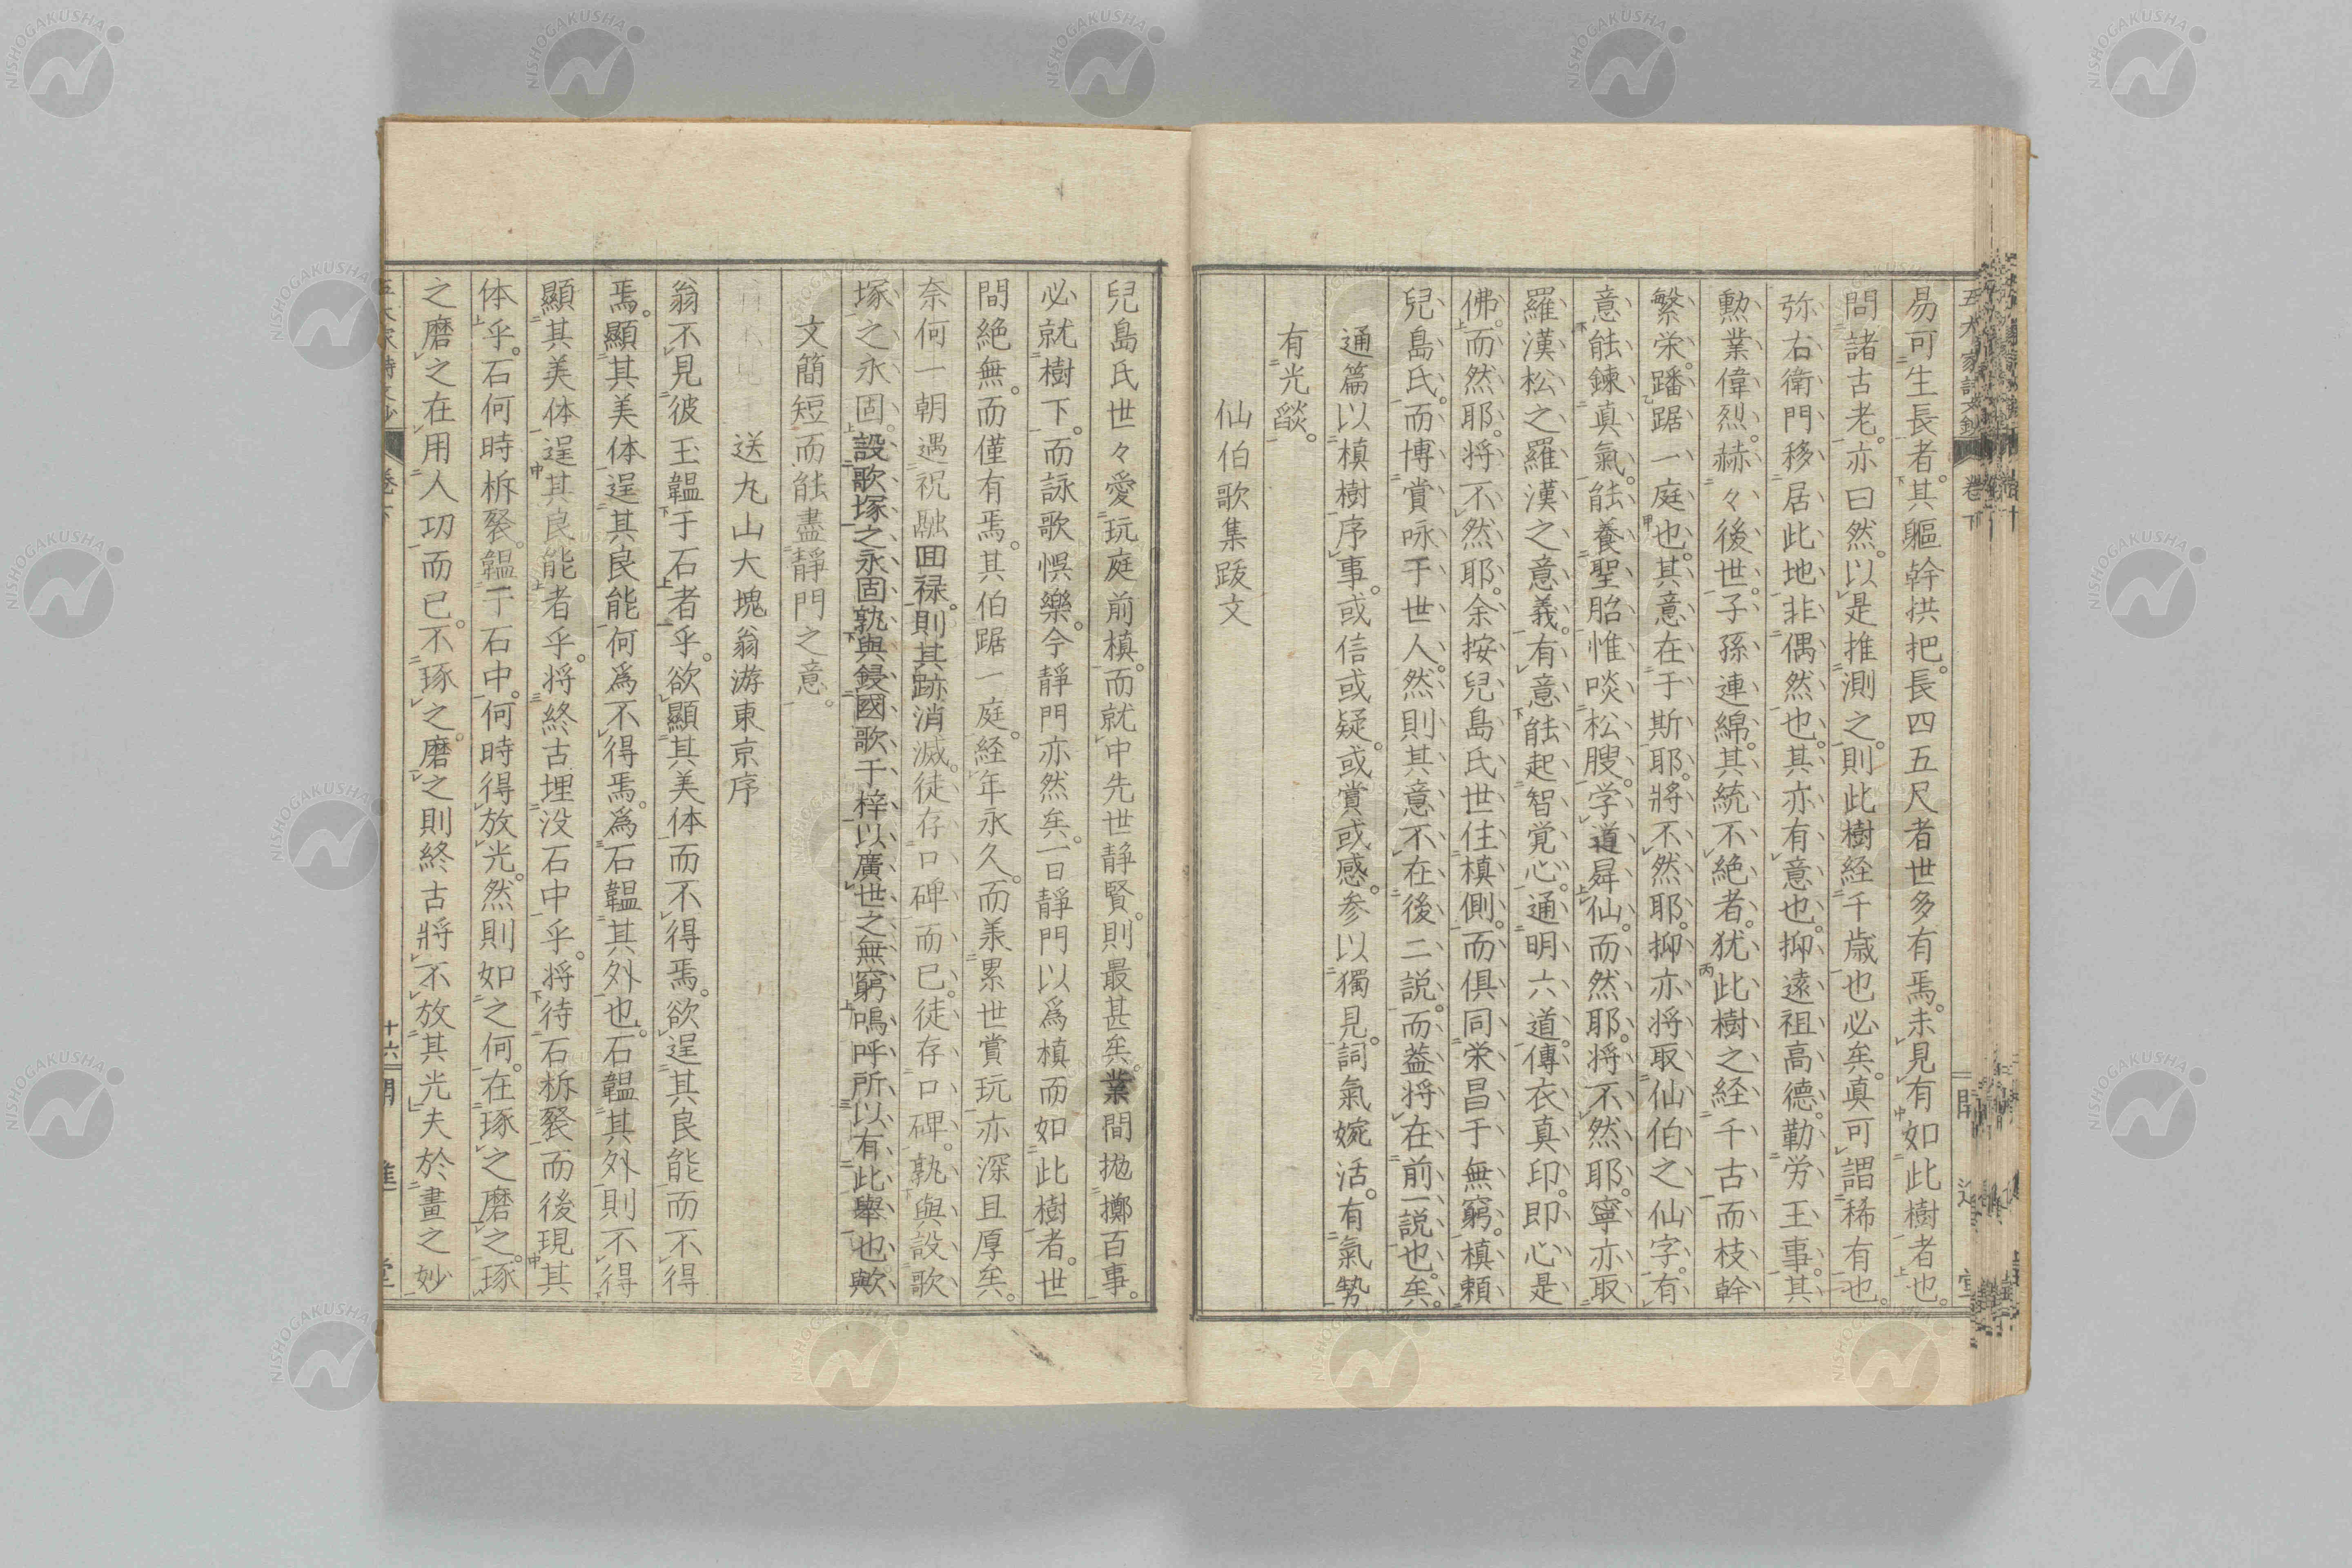 易可生長者。其軀幹拱把。長四五尺者世多有焉。未見有如此樹者也。
問諸古老。亦曰然。以是推測之。則此樹経千歳也必矣。真可謂稀有也。
弥右衛門移居此地。非偶然也。其亦有意也。抑遠祖高德。勤労王事。其
勲業偉烈。赫々後世。子孫連綿。其統不絶者。犹此樹之経千古而枝幹
繁栄。蹯踞一庭也。其意在于斯耶。將不然耶。抑亦将取仙伯之仙字。有
意能鍊真氣。能養聖胎。惟啖松膄。学道昇仙。而然耶。将不然耶。寧亦取
羅漢松之羅漢之意義。有意能起智覚心。通明六道。傳衣真印。即心是
佛。而然耶。将不然耶。余按兒島氏世住槙側。而俱同栄昌于無窮。槙頼
兒島氏。而博賞咏于世人。然則其意不在後二説。而蓋将在前一説也矣。
通篇以槙樹序事。或信或疑。或賞或感。参以獨見。詞氣婉活。有氣勢
有光燄。
仙伯歌集跋文
兒島氏世々愛玩庭前槙。而就中先世静賢。則最甚矣。業間拋擲百事。
必就樹下。而詠歌悞樂。今静門亦然矣。一日静門以爲槙而如此樹者。世
間絶無。而僅有焉。其伯踞一庭。経年永久。而羕累世賞玩亦深且厚矣。
奈何一朝遇祝融囬禄。則其跡消滅。徒存口碑而已。徒存口碑。孰與設歌
塚之永固。設歌塚之永固孰與鋟國歌于梓以廣世之無窮。嗚呼所以有此舉也歟
文簡短而能盡静門之意。
送九山大塊翁游東京序
翁不見彼玉韞于石者乎。欲顯其美体而不得焉。欲逞其良能而不得
焉。顯其美体逞其良能何爲不得焉。爲石韞其外也。石韞其外則不得
顯其美体逞其良能者乎。将終古埋没石中乎。将待石柝裂而後現其
体乎。石何時柝裂。韞于石中。何時得放光。然則如之何。在琢之磨之。琢
之磨之在用人切而已。不琢之。磨之則終古將不放其光夫於畫之妙